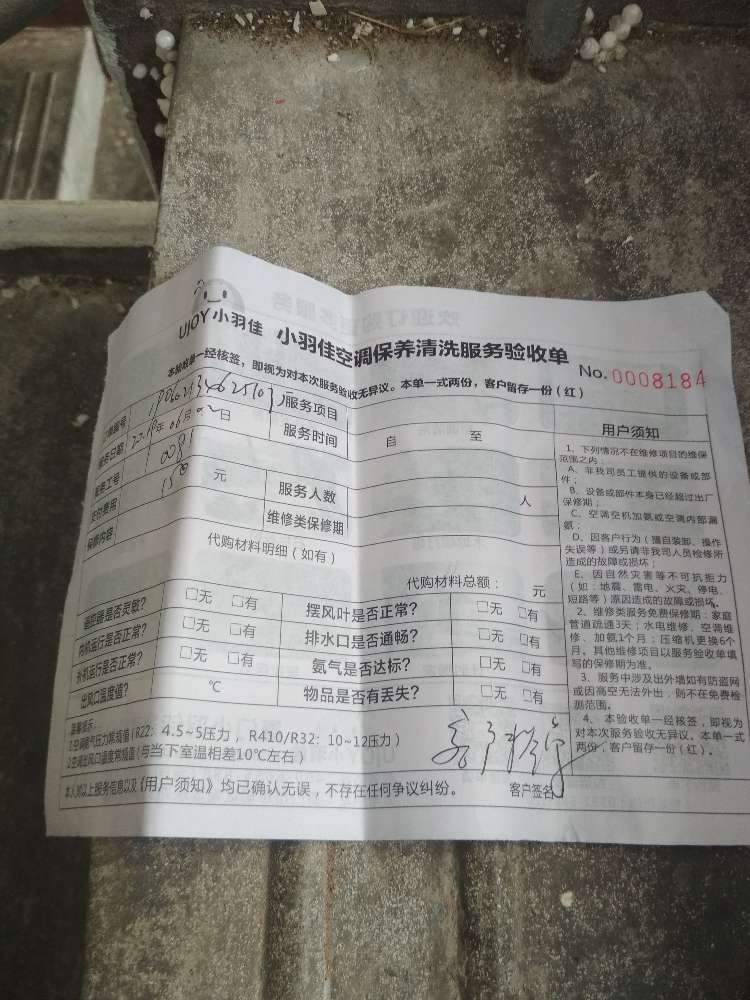 UJOY小羽佳
小羽佳空调保养清洗服务验收单
No. 0008184
本验收单一经核签，即视为对本次服务验收无异议。本单一式两份，客户留存一份（红）
服务项目
服务日期 年06月02日
服务时间 自 至
0081
150 元
服务人数 人
保修内容
维修类保修期
代购材料明细（如有）
代购材料总额： 元
遥控器是否灵敏？ □无 □有
摆风叶是否正常？ □无 □有
内机运行是否正常？ □无 □有
排水口是否通畅？ □无 □有
外机运行是否正常？ □无 □有
氨气是否达标？ □无 □有
出风口温度值？ ℃
物品是否有丢失？ □无 □有
1.空调氨气压力常规值（R22：4.5~5压力，R410/R32：10~12压力）
2.空调出风口温度常规值(与当下室温相差10℃左右)
本人对以上服务信息以及《用户须知》均已确认无误，不存在任何争议纠纷。
客户签名
用户须知
1、下列情况不在维修项目的维保
范围之内：
A、非我司员工提供的设备或部
件；
B、设备或部件本身已经超过出厂
保修期；
C、空调空机加氨或空调内部漏
氨；
D、因客户行为（擅自装卸、操作
失误等）或另请非我司人员检修所
造成的故障或损坏；
E、因自然灾害等不可抗拒力
（如：地震、雷电、火灾、停电、
短路等）原因造成的故障或损坏。
2、维修类服务免费保修期：家庭
管道疏通3天；水电维修、空调维
修、加氨1个月；压缩机更换6个
月。其他维修项目以服务验收单填
写的保修期为准。
3、服务中涉及出外墙如有防盗网
或因高空无法外出，则不在免费检
测范围。
4、本验收单一经核签，即视为
对本次服务验收无异议。本单一式
两份，客户留存一份（红）。